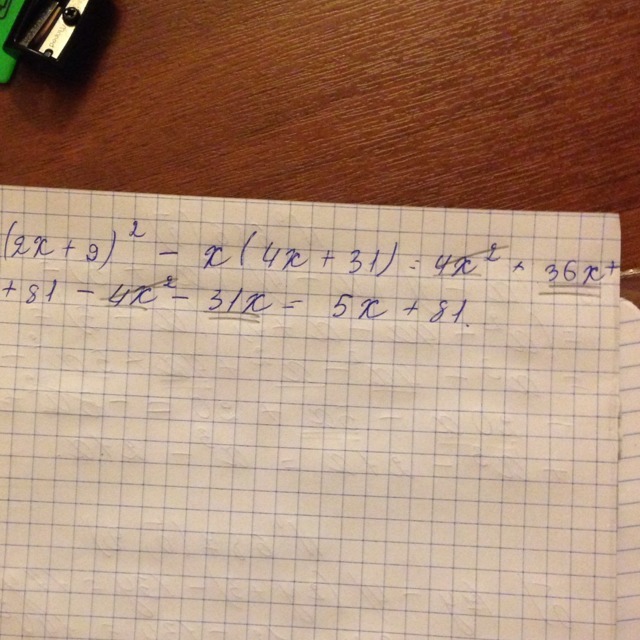 (2x+9)² - x(4x+31) = 4x² + 36x +
+81 - 4x² - 31x = 5x + 81.